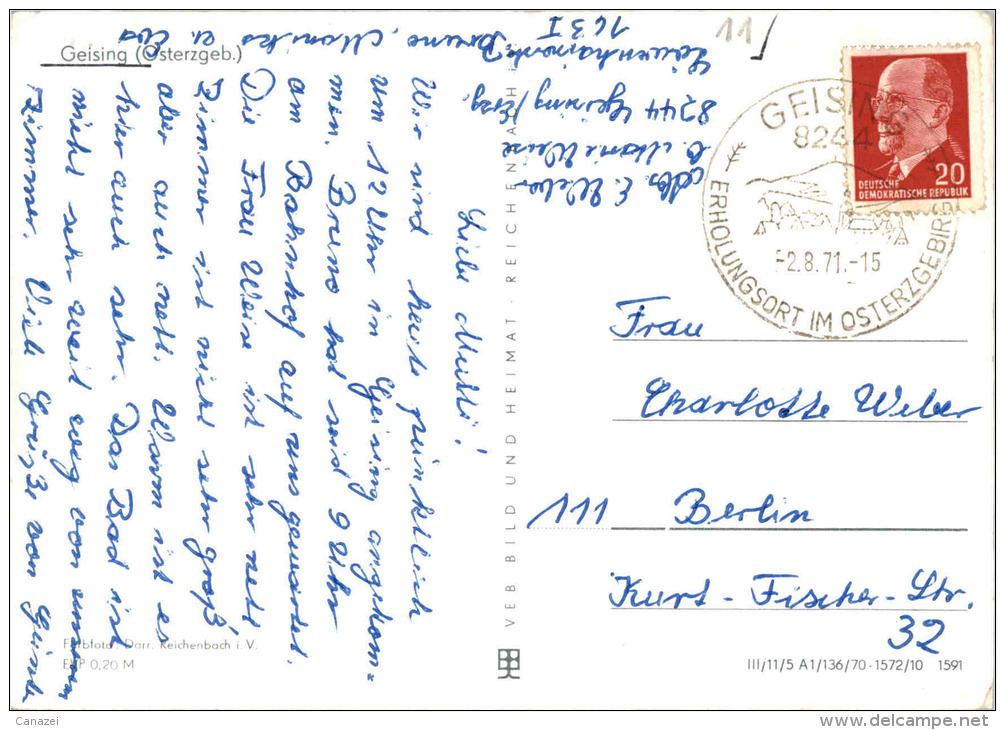 Geising (Osterzgeb.)
Liebe Mutti!
Wir sind heute pünktlich
um 12 Uhr in Geising angekom=
men. Bruno hat seid 9 Uhr
am Bahnhof auf uns gewartet.
Die Frau Weise ist sehr nett
Zimmer ist nicht sehr groß,
aber auch nett. Warm ist es
hier auch sehr. Das Bad ist
nicht sehr weit weg von unserem
Zimmer. Viele Grüße von
Bruno, Monika u. Eva
Abs. E. Weber
b. Marie Weise
8244 Geising/Erzg.
163 I
11
Farbfoto: Darr, Reichenbach i. V.
EVP 0,20 M
VEB BILD UND HEIMAT REICHENBACH i.
GEISING
8244
-2.8.71.-15
ERHOLUNGSORT IM OSTERZGEBIRGE
20
DEUTSCHE
DEMOKRATISCHE REPUBLIK
Frau
Charlotte Weber
111 Berlin
Kurt-Fischer-Str.
32
III/11/5 A1/136/70-1572/10 1591
Canazei
delcampe.net